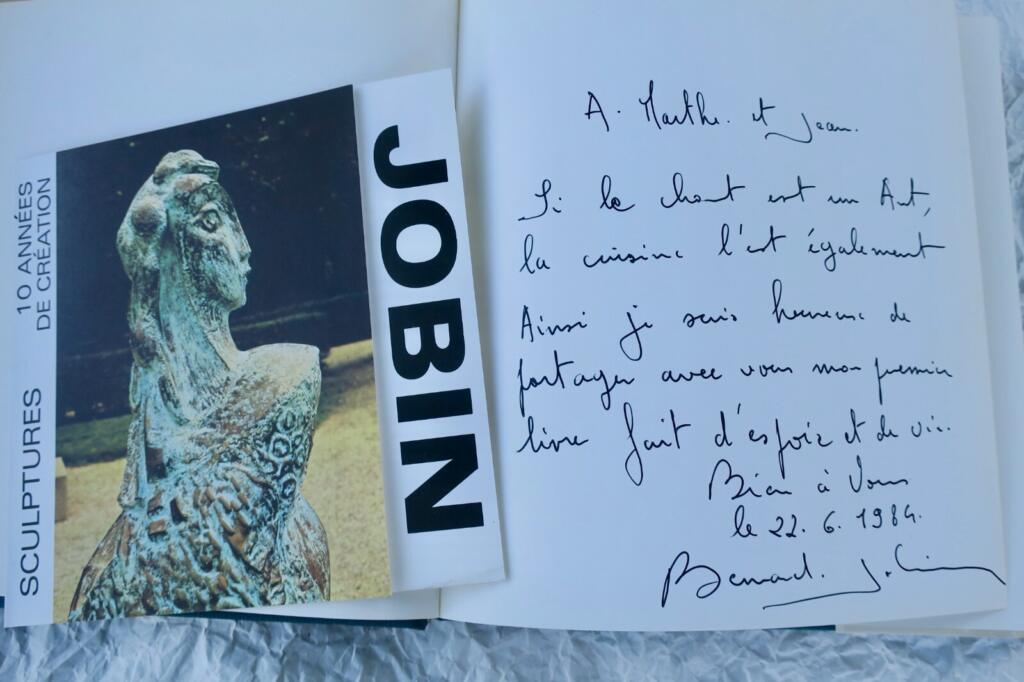 JOBIN
10 ANNÉES
DE CRÉATION
SCULPTURES
A. Marthe. et Jean.
Si le chant est un Art,
la cuisine l'est également
Ainsi je suis heureux de
partager avec vous mon premier
livre fait d'espoir et de vie.
Bien à Vous
le 22.6.1984.
Bernard. Jobin